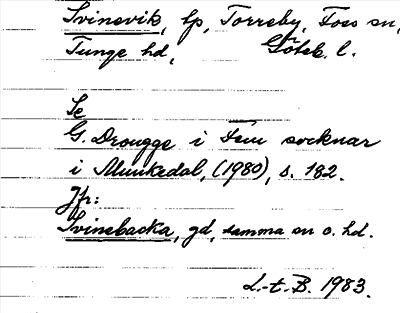 Svinevik, lp, Torreby, Foss sn,
Tunge hd, Göteb. l.
Se
G. Drougge i Fem socknar
i Munkedal, (1980), s. 182.
Jfr:
Svinebacka, gd, samma sn o. hd.
L.-t. B. 1983.